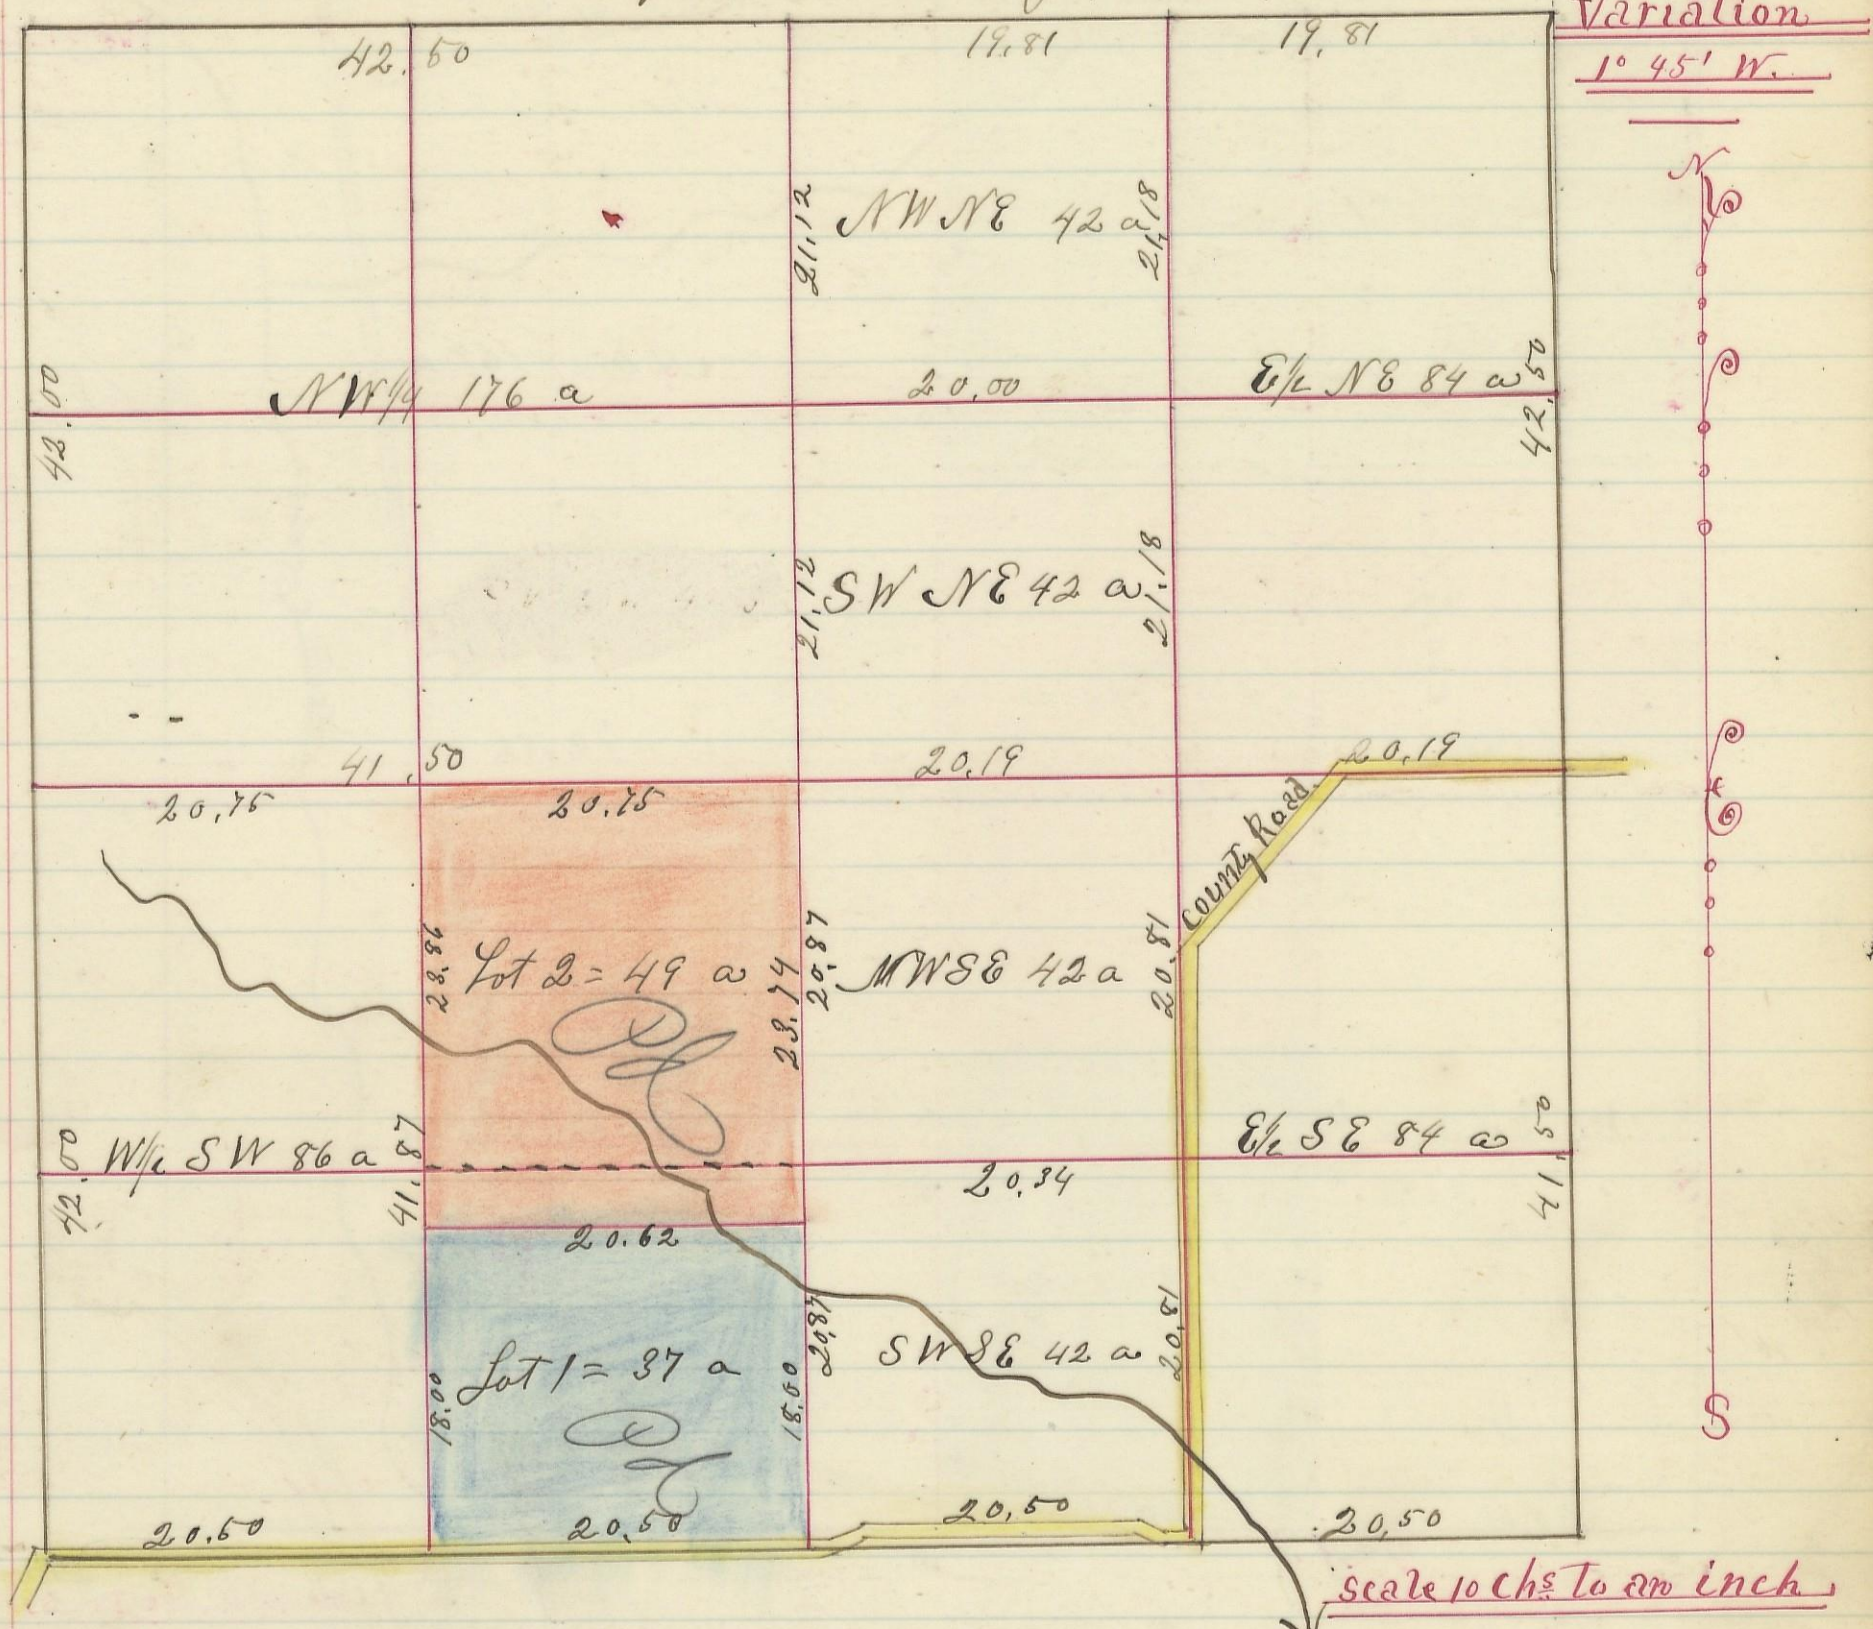 Variation
1° 45' W.
42.50
19.81
19.81
N
21.12
NW NE 42 a
21.18
42.00
NW 1/4 176 a
20.00
E/2 NE 84 a
42.50
21.12
SW NE 42 a
21.18
41.50
20.19
20.19
20.75
20.75
County Road.
23.86
Lot 2 = 49 a
23.74
20.87
NWSE 42 a
20.81
42.00
W/2 SW 86 a
41.87
20.34
E/2 SE 84 a
41.50
20.62
Lot 1 = 37 a
18.00
18.00
20.87
SWSE 42 a
20.81
S
20.50
20.50
20.50
20.50
scale 10 chs. To an inch